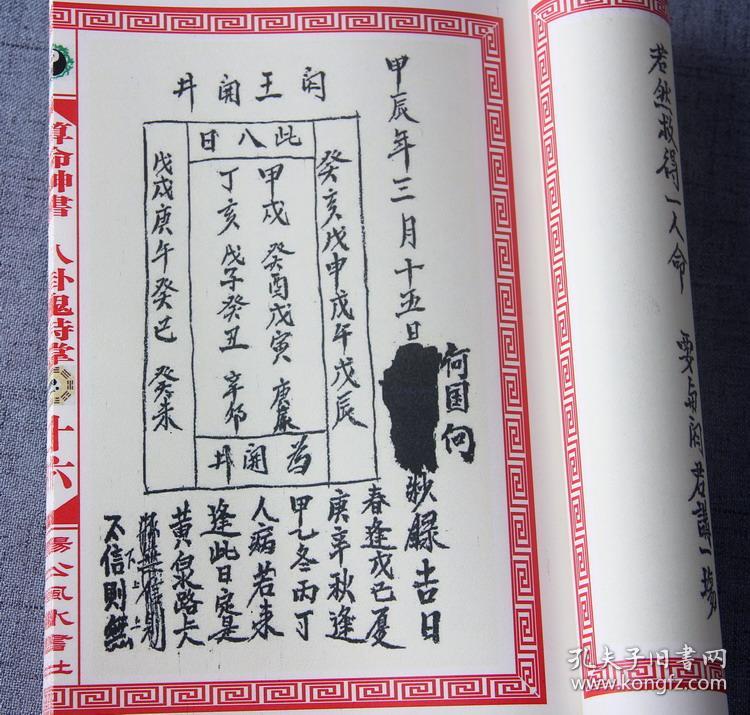 若然救得一人命
要与阎君講一場
甲辰年三月十五日
何国向
抄録吉日
井開王閻
日八此
癸亥戊申戊午戊辰
甲戌癸酉戊寅庚辰
丁亥戊子癸丑辛卯
戊戌庚午癸巳癸未
井開為
春逢戊己夏
庚辛秋逢
甲乙冬丙丁
人病若来
逢此日定是
黄泉路上
不信則無
算命神書
八卦鬼時掌
十六
楊公風水書社
孔夫子旧书网
www.kongfz.com